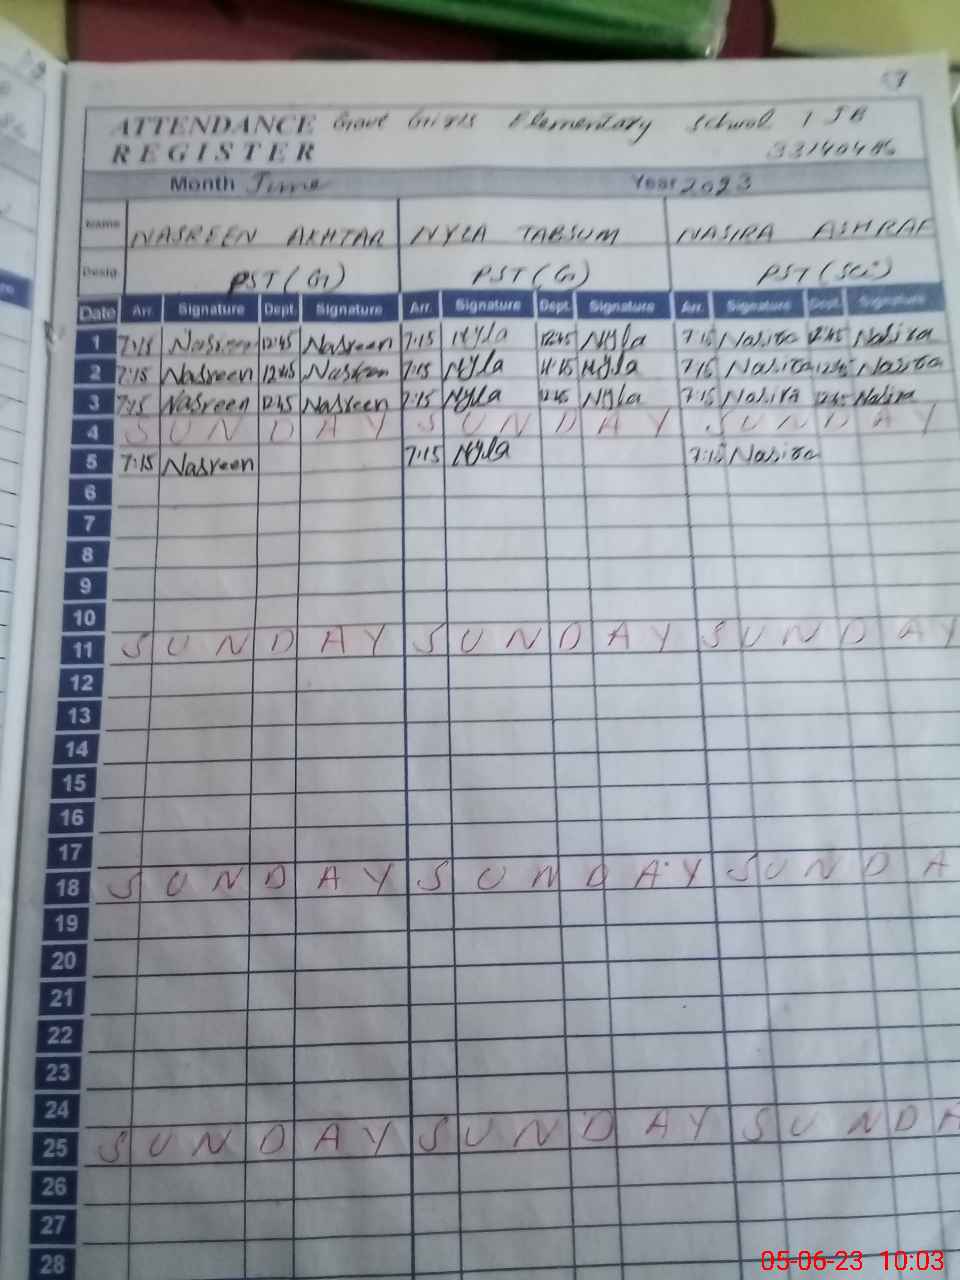 ATTENDANCE Govt Girls Elementary School 1 JB
REGISTER 33140486
Month June Year 2023
Name NASREEN AKHTAR NYLA TABSUM NASIRA ASHRAF
Desig. PST(G) PST(G) PST(Sci)
Date Arr. Signature Dept. Signature Arr. Signature Dept. Signature Arr. Signature Dept. Signature
1 7:15 Nasreen 12:45 Nasreen 7:15 Nyla 12:45 Nyla 7:15 Nasira 12:45 Nasira
2 7:15 Nasreen 12:45 Nasreen 7:15 Nyla 11:15 Nyla 7:15 Nasira 12:45 Nasira
3 7:15 Nasreen 12:45 Nasreen 7:15 Nyla 12:45 Nyla 7:15 Nasira 12:45 Nasira
4 S U N D A Y S U N D A Y S U N D A Y
5 7:15 Nasreen 7:15 Nyla 7:15 Nasira
6
7
8
9
10
11 S U N D A Y S U N D A Y S U N D A Y
12
13
14
15
16
17
18 S U N D A Y S U N D A Y S U N D A
19
20
21
22
23
24
25 S U N D A Y S U N D A Y S U N D A
26
27
28
05-06-23 10:03